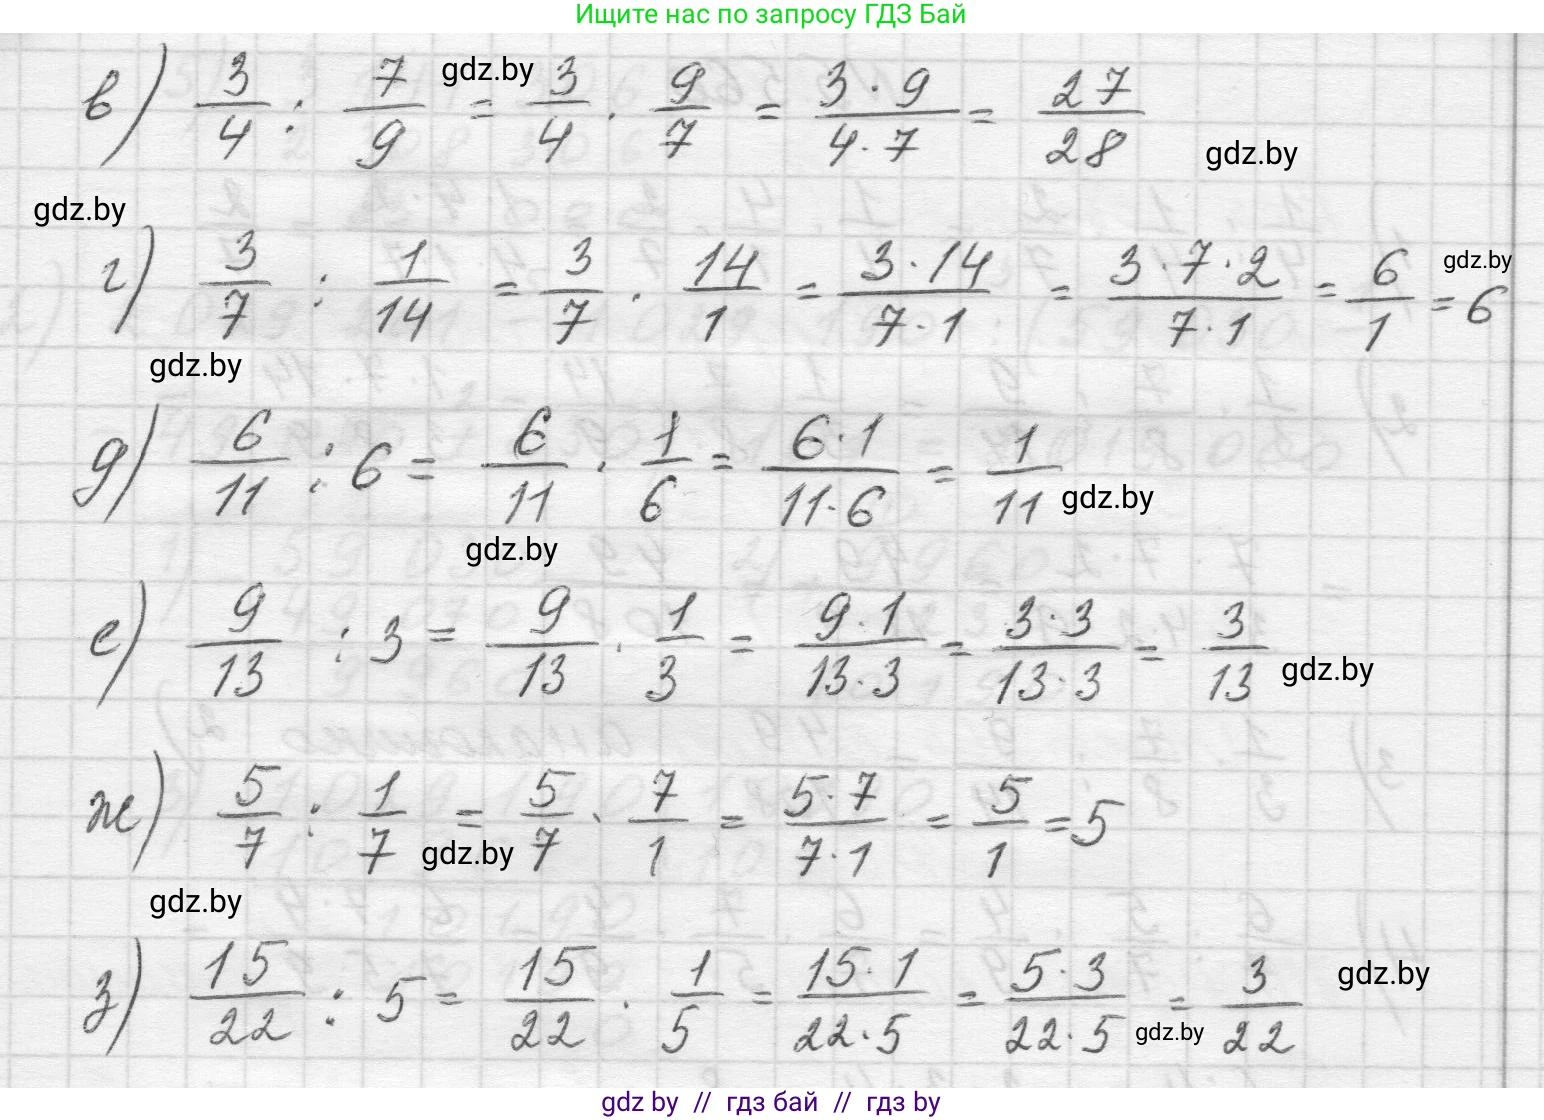 Ищите нас по запросу ГДЗ Бай
в) 3/4 : 7/9 = 3/4 · 9/7 = 3·9/4·7 = 27/28
gdz.by
gdz.by
gdz.by
г) 3/7 : 1/14 = 3/7 · 14/1 = 3·14/7·1 = 3·7·2/7·1 = 6/1 = 6
gdz.by
gdz.by
д) 6/11 : 6 = 6/11 · 1/6 = 6·1/11·6 = 1/11
gdz.by
gdz.by
е) 9/13 : 3 = 9/13 · 1/3 = 9·1/13·3 = 3·3/13·3 = 3/13
gdz.by
ж) 5/7 : 1/7 = 5/7 · 7/1 = 5·7/7·1 = 5/1 = 5
gdz.by
gdz.by
з) 15/22 : 5 = 15/22 · 1/5 = 15·1/22·5 = 5·3/22·5 = 3/22
gdz.by
gdz.by
gdz by // гдз бай // гдз by